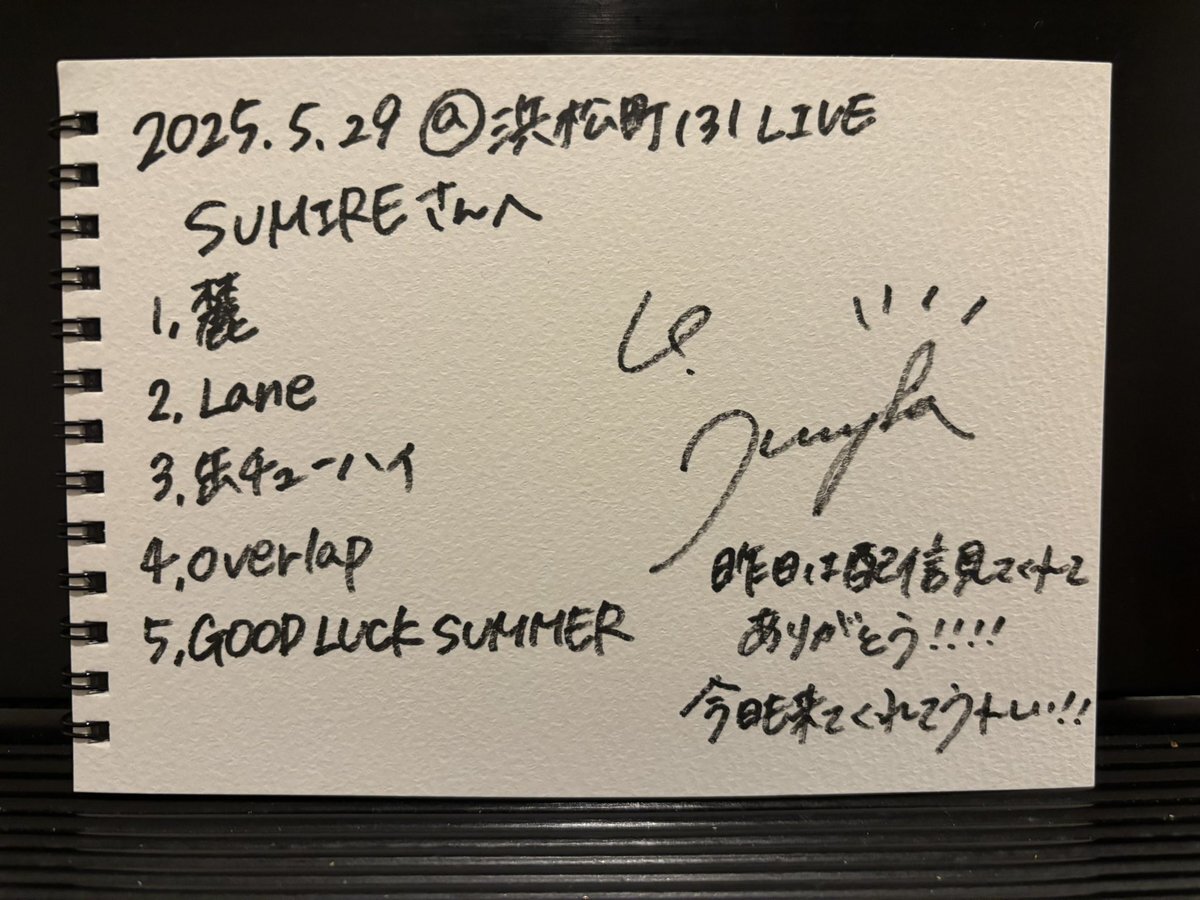 2025.5.29 @浜松町131 LIVE
SUMIREさんへ
1.麓
2.Lane
3.缶チューハイ
4.overlap
5.GOOD LUCK SUMMER
昨日は配信見てくれて
ありがとう!!!!
今日も来てくれてうれしい!!